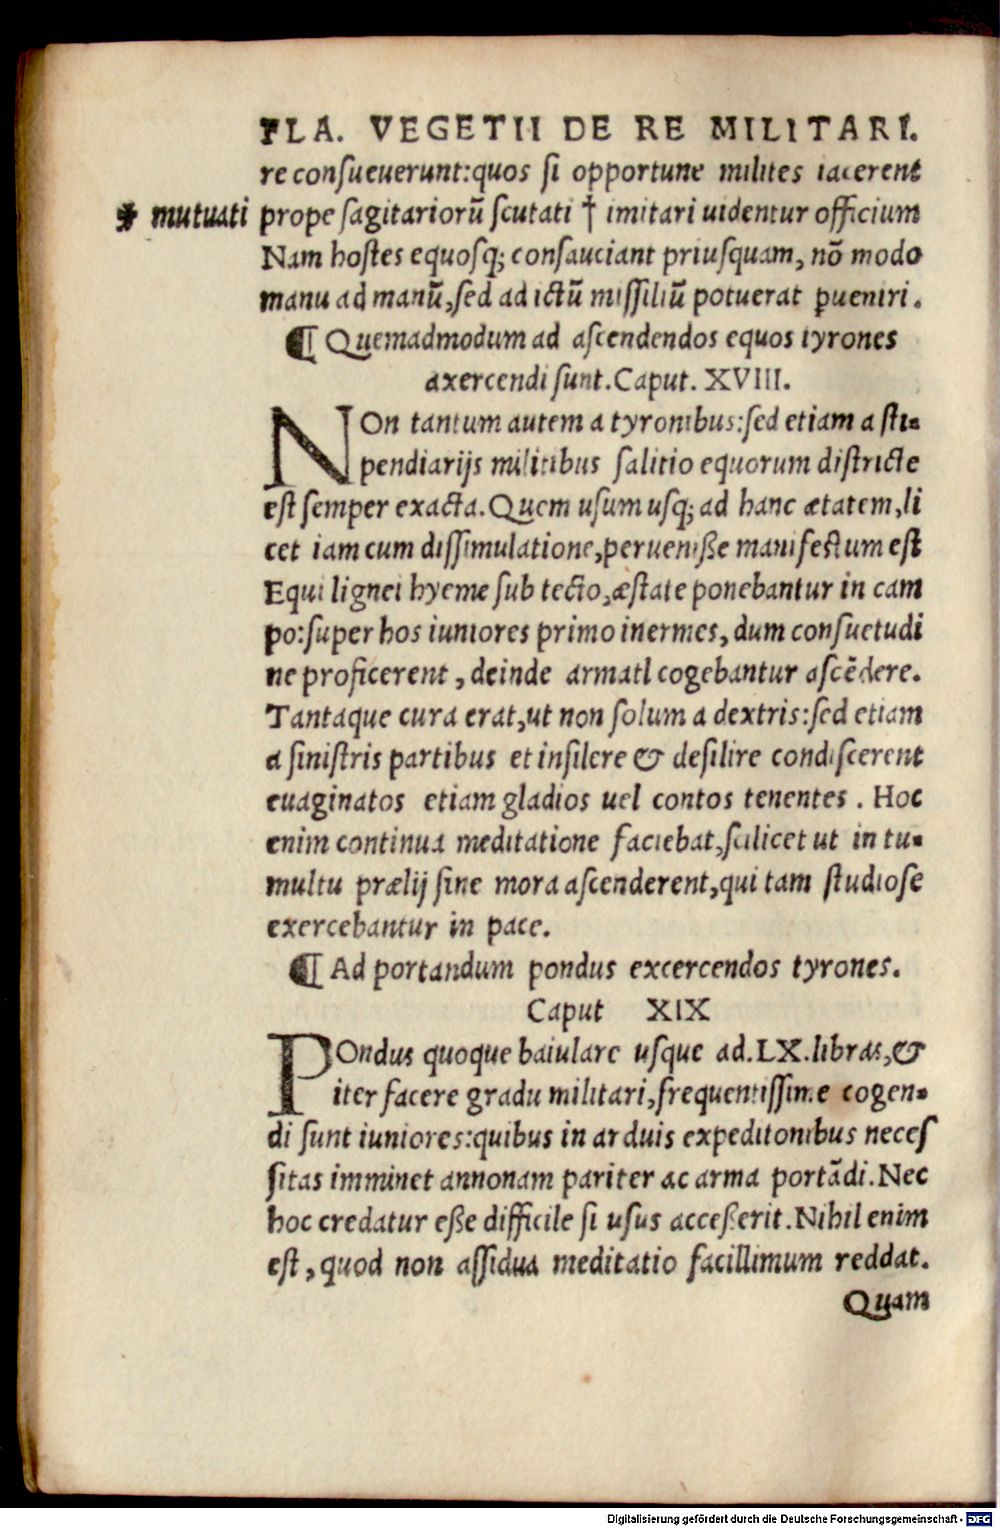 FLA. VEGETII DE RE MILITARI.
re conſueuerunt:quos ſi opportune milites iacerent
✤ mutuati prope ſagitariorũ ſcutati † imitari uidentur officium
Nam hoſtes equoſq; conſauciant priuſquam, nõ modo
manu ad manũ,ſed ad ictũ miſſiliũ potuerat ꝑueniri.
¶ Quemadmodum ad aſcendendos equos tyrones
axercendi ſunt.Caput. XVIII.
NOn tantum autem a tyronibus:ſed etiam a ſti-
pendiarijs militibus ſalitio equorum diſtricte
eſt ſemper exacta.Quem uſum uſq; ad hanc ætatem,li
cet iam cum diſſimulatione,perueniße manifeſtum eſt
Equi lignei hyeme ſub tecto,æſtate ponebantur in cam
po:ſuper hos iuniores primo inermes,dum conſuetudi
ne proficerent, deinde armatl cogebantur aſcẽdere.
Tantaque cura erat,ut non ſolum a dextris:ſed etiam
a ſiniſtris partibus et inſilere & deſilire condiſcerent
euaginatos etiam gladios uel contos tenentes. Hoc
enim continua meditatione faciebat,ſcilicet ut in tu-
multu prælij ſine mora aſcenderent,qui tam ſtudioſe
exercebantur in pace.
¶ Ad portandum pondus excercendos tyrones.
Caput XIX
POndus quoque baiulare uſque ad.LX.libras,&
iter facere gradu militari,frequentiſſime cogen-
di ſunt iuniores:quibus in arduis expeditonibus neceſ
ſitas imminet annonam pariter ac arma portãdi.Nec
hoc credatur eße difficile ſi uſus acceßerit.Nihil enim
eſt, quod non aſſidua meditatio facillimum reddat.
Quam
Digitalisierung gefördert durch die Deutsche Forschungsgemeinschaft - DFG